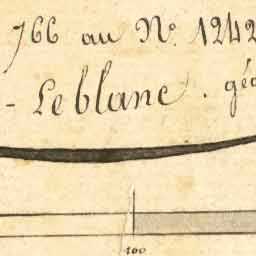 766 au N°. 1242
- Leblanc. géo
100